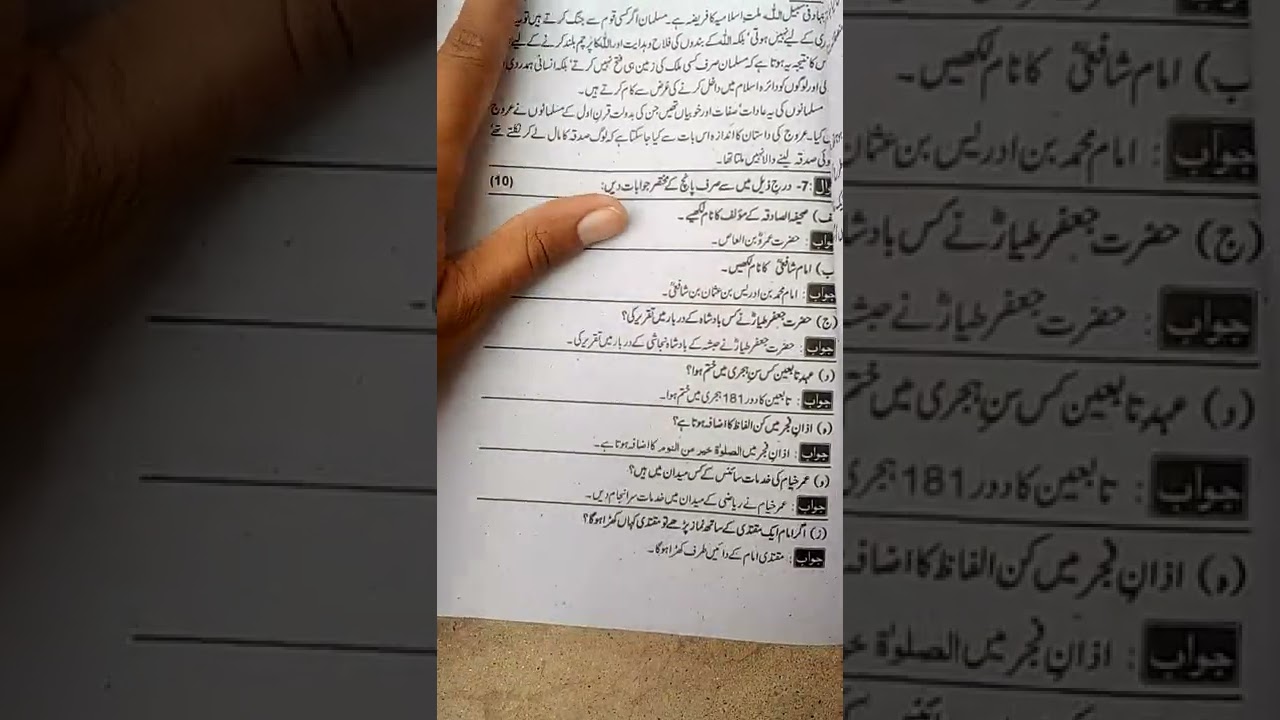 جہاد فی سبیل اللہ، ملت اسلامیہ کا فریضہ ہے۔ مسلمان اگر کسی قوم سے جنگ کرتے ہیں تو یہ
ری کے لیے نہیں ہوتی، بلکہ اللہ کے بندوں کی فلاح و ہدایت اور اللہ کا پرچم بلند کرنے کے لیے
س کا نتیجہ یہ ہوتا ہے کہ مسلمان صرف کسی ملک کی زمین ہی فتح نہیں کرتے، بلکہ انسانی ہمدردی
لی اور لوگوں کو دائرہ اسلام میں داخل کرنے کی غرض سے کام کرتے ہیں۔
مسلمانوں کی یہ عادات، صفات اور خوبیاں تھیں جن کی بدولت قرنِ اول کے مسلمانوں نے عروج
کیا۔ عروج کی داستان کا اندازہ اس بات سے کیا جا سکتا ہے کہ لوگ صدقہ کا مال لے کر نکلتے تھے
وئی صدقہ لینے والا نہیں ملتا تھا۔
7- درج ذیل میں سے صرف پانچ کے مختصر جوابات دیں: (10)
ف) صحیفہ الصادقہ کے مؤلف کا نام لکھیے۔
جواب : حضرت عمروؓ بن العاص۔
ب) امام شافعیؒ کا نام لکھیں۔
جواب : امام محمد بن ادریس بن عثمان بن شافعیؒ۔
(ج) حضرت جعفر طیارؓ نے کس بادشاہ کے دربار میں تقریر کی؟
جواب : حضرت جعفر طیارؓ نے حبشہ کے بادشاہ نجاشی کے دربار میں تقریر کی۔
(د) عہد تابعین کس سنِ ہجری میں ختم ہوا؟
جواب : تابعین کا دور 181 ہجری میں ختم ہوا۔
(ہ) اذانِ فجر میں کن الفاظ کا اضافہ ہوتا ہے؟
جواب : اذانِ فجر میں الصلوٰة خیر من النوم کا اضافہ ہوتا ہے۔
(و) عمر خیام کی خدمات سائنس کے کس میدان میں ہیں؟
جواب : عمر خیام نے ریاضی کے میدان میں خدمات سرانجام دیں۔
(ز) اگر امام ایک مقتدی کے ساتھ نماز پڑھے تو مقتدی کہاں کھڑا ہوگا؟
جواب : مقتدی امام کے دائیں طرف کھڑا ہوگا۔
ب) امام شافعیؒ کا نام لکھیں۔
جواب : امام محمد بن ادریس بن عثمان
(ج) حضرت جعفر طیارؓ نے کس بادشا
جواب : حضرت جعفر طیارؓ نے حبشہ
(د) عہد تابعین کس سنِ ہجری میں ختم
جواب : تابعین کا دور 181 ہجری
(ہ) اذانِ فجر میں کن الفاظ کا اضافہ
جواب : اذانِ فجر میں الصلوٰة خیر